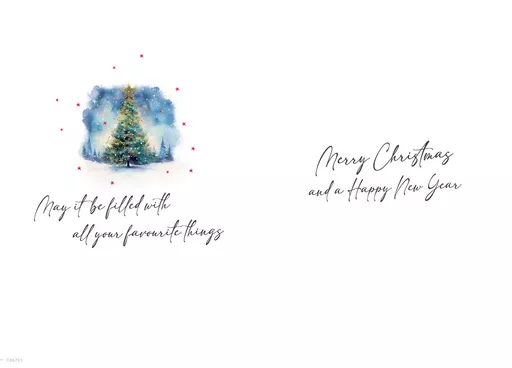 May it be filled with
all your favourite things
Merry Christmas
and a Happy New Year